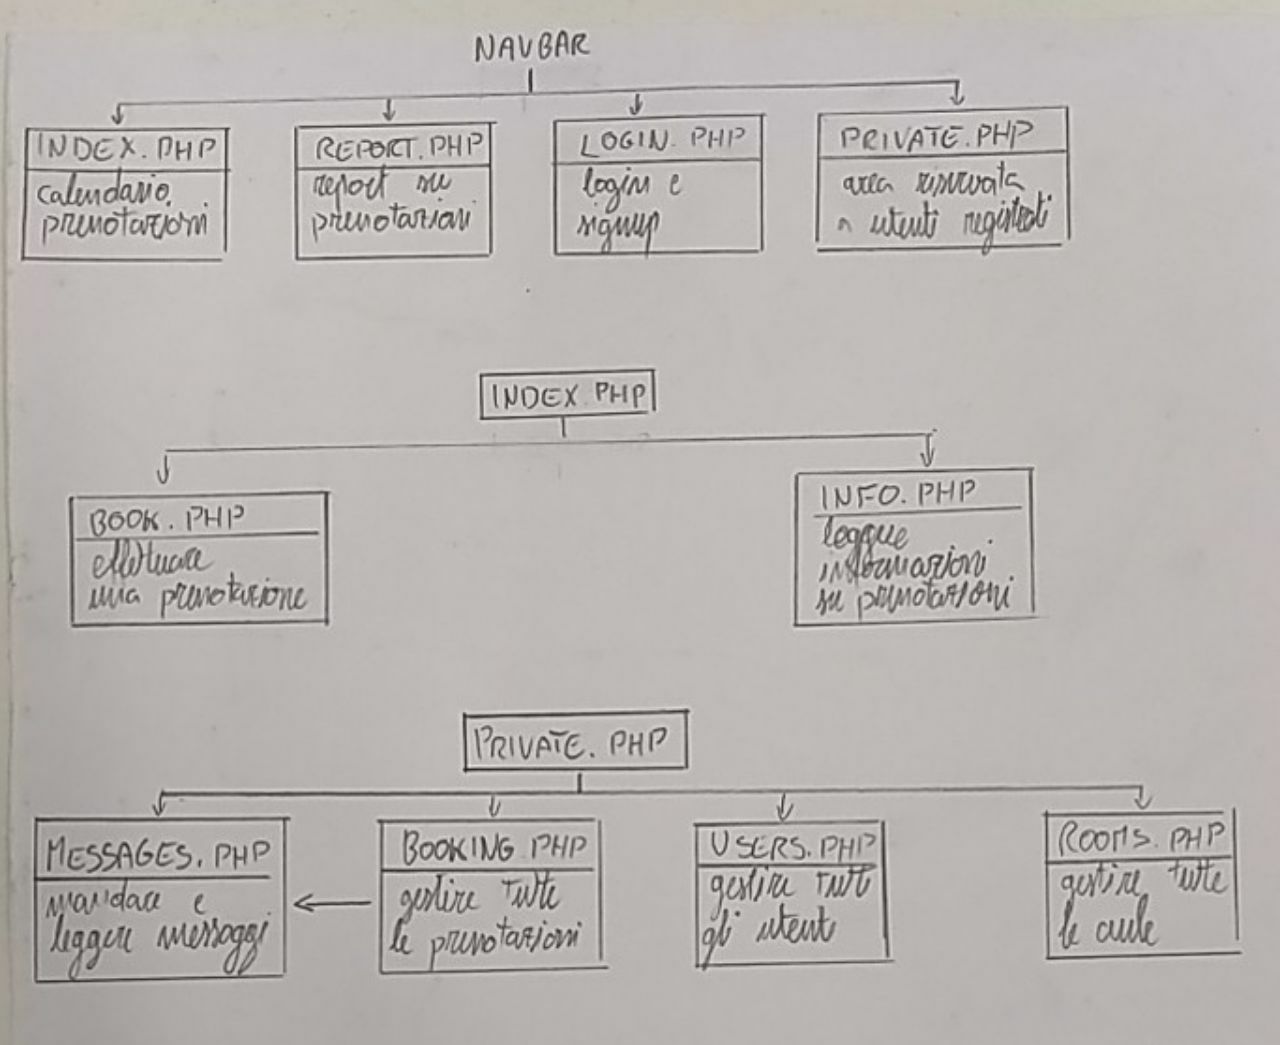 NAVBAR
INDEX.PHP
calendario
prenotazioni
REPORT.PHP
report su
prenotazioni
LOGIN.PHP
login e
signup
PRIVATE.PHP
area riservata
a utenti registrati
INDEX.PHP
BOOK.PHP
effettuare
una prenotazione
INFO.PHP
leggere
informazioni
su prenotazioni
PRIVATE.PHP
MESSAGES.PHP
mandare e
leggere messaggi
BOOKING.PHP
gestire tutte
le prenotazioni
USERS.PHP
gestire tutti
gli utenti
ROOMS.PHP
gestire tutte
le aule